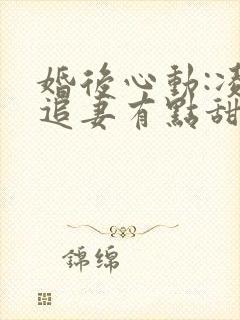 婚後心動:凌
追妻有點甜
錦绵